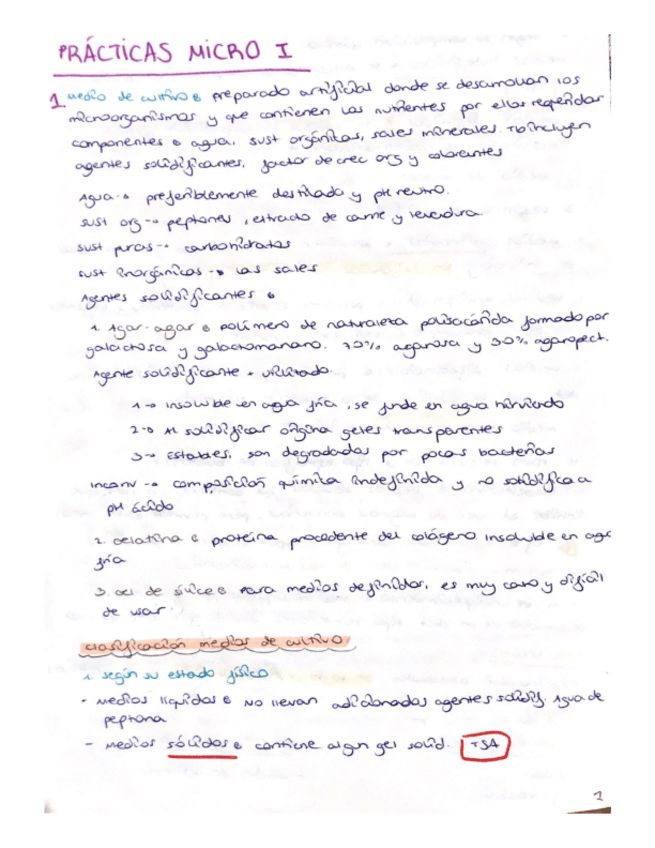 PRÁCTICAS MICRO I
1 Medio de cultivo: preparado artificial donde se desarrollan los
microorganismos y que contienen los nutrientes por ellos requeridos
componentes: agua, sust orgánicas, sales minerales. incluyen
agentes solidificantes, factor de crec org y colorantes
Agua → preferiblemente destilada y pH neutro.
sust org → peptonas, extracto de carne y levadura
sust puras → carbohidratos
sust inorgánicas → las sales
Agentes solidificantes:
1. Agar-agar: polímero de naturaleza polisacárida formado por
galactosa y galactomanano. 70% agarosa y 30% agaropect.
Agente solidificante + utilizado.
1 → insoluble en agua fría, se funde en agua hirviendo
2 → Al solidificar origina geles transparentes
3 → Estables, son degradados por pocas bacterias
Inconv → composición química indefinida y no solidifica a
pH ácido
2. Gelatina: proteína procedente del colágeno. Insoluble en agu
fría
3. Gel de sílice: Para medios definidos, es muy caro y difícil
de usar.
Clasificación medios de cultivo
1. según su estado físico
- Medios líquidos: No llevan adicionados agentes solidif. Agua de
peptona
- Medios sólidos: contiene algun gel solid. TSA
1